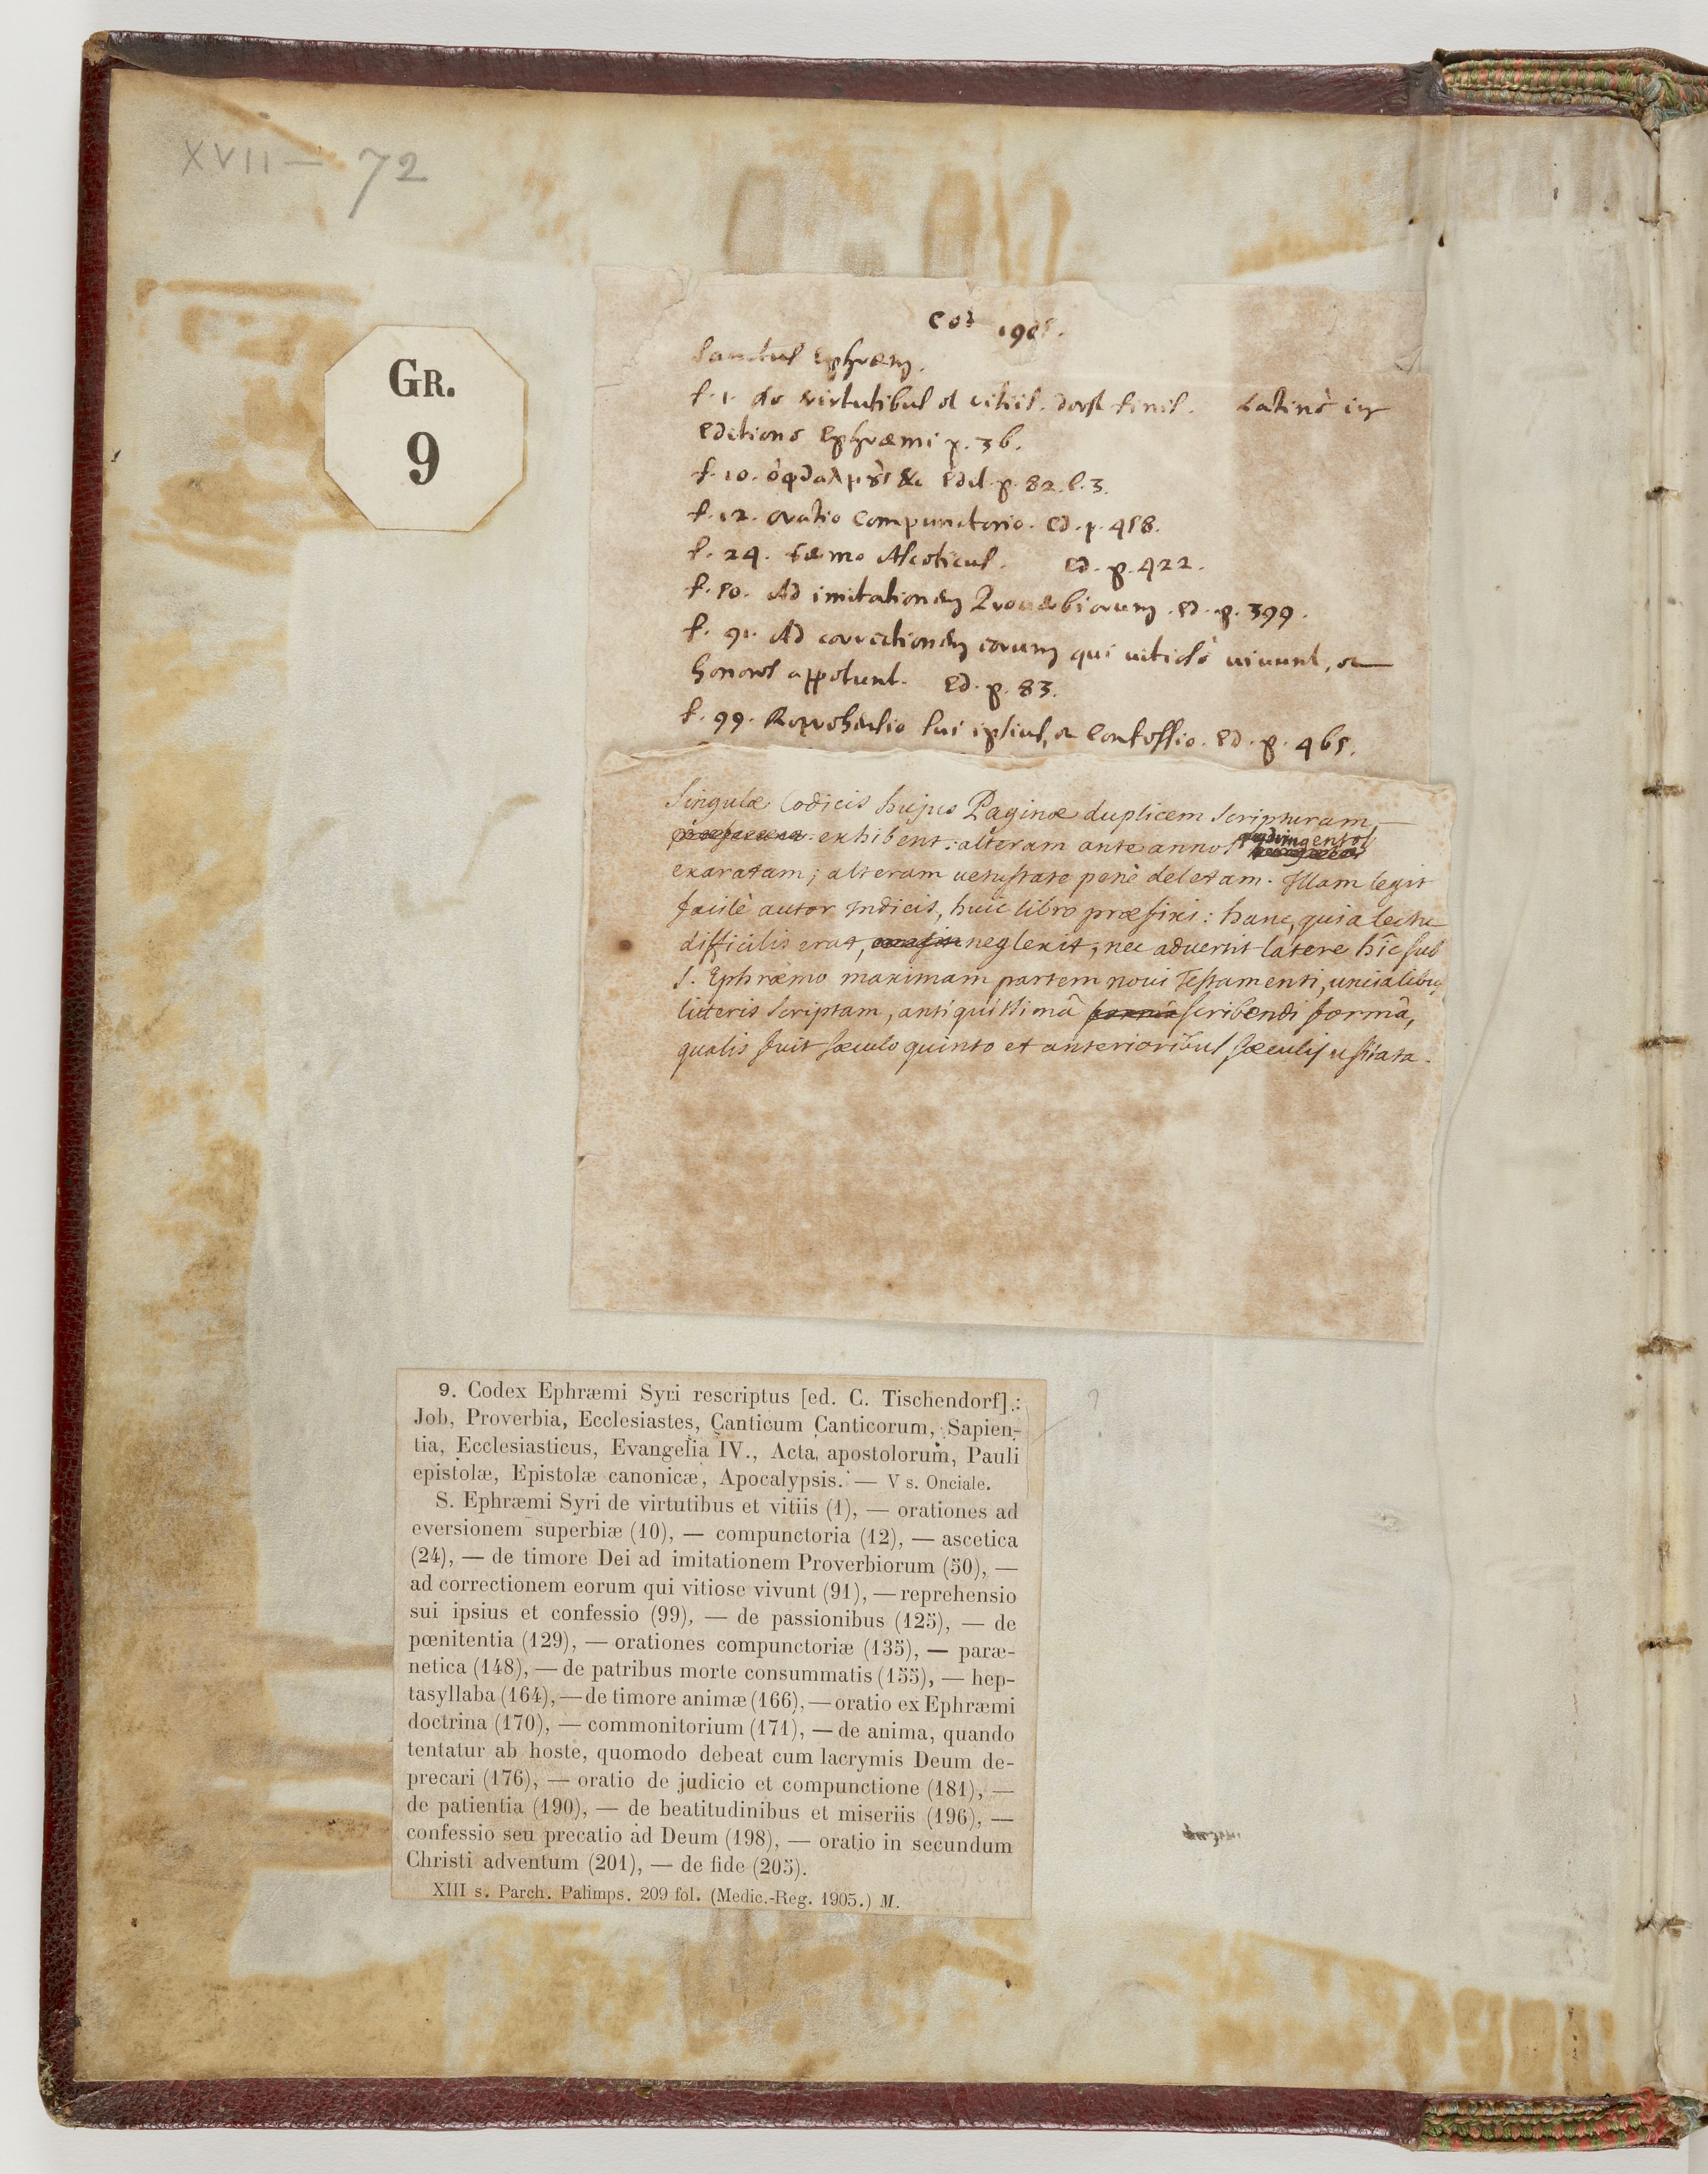 XVII — 72
GR.
9
Cod 1905.
Sanctus Ephræm.
f. 1. de virtutibus et vitiis. deest finis. Latinè in
editione Ephræmi p. 36.
f. 10. ὀφθαλμὸς &c Edit. p. 82. l. 3.
f. 12. oratio compunctoria. Ed. p. 458.
f. 24. sermo Asceticus. Ed. p. 422.
f. 50. Ad imitationem Proverbiorum. Ed. p. 399.
f. 91. Ad correctionem eorum qui vitiosè uiuunt, et
honores appetunt. Ed. p. 83.
f. 99. Reprehensio sui ipsius, et Confessio. Ed. p. 465.
Singulæ Codicis hujus Paginæ duplicem scripturam
exhibent: alteram ante annos quadringentos
exaratam; alteram uetustate penè deletam. Illam legit
facilè autor Indicis, huic libro præfixi: hanc, quia lectu
difficilis erat, neglexit; nec aduertit latere hîc sub
S. Ephræmo maximam partem noui Testamenti, uncialibus
litteris scriptam, antiquissimâ scribendi formâ,
qualis fuit sæculo quinto et anterioribus sæculis usitata.
9. Codex Ephræmi Syri rescriptus [ed. C. Tischendorf]:
Job, Proverbia, Ecclesiastes, Canticum Canticorum, Sapien-
tia, Ecclesiasticus, Evangelia IV., Acta apostolorum, Pauli
epistolæ, Epistolæ canonicæ, Apocalypsis. — V s. Onciale.
S. Ephræmi Syri de virtutibus et vitiis (1), — orationes ad
eversionem superbiæ (10), — compunctoria (12), — ascetica
(24), — de timore Dei ad imitationem Proverbiorum (50), —
ad correctionem eorum qui vitiose vivunt (91), — reprehensio
sui ipsius et confessio (99), — de passionibus (125), — de
pœnitentia (129), — orationes compunctoriæ (135), — paræ-
netica (148), — de patribus morte consummatis (155), — hep-
tasyllaba (164), — de timore animæ (166), — oratio ex Ephræmi
doctrina (170), — commonitorium (171), — de anima, quando
tentatur ab hoste, quomodo debeat cum lacrymis Deum de-
precari (176), — oratio de judicio et compunctione (181), —
de patientia (190), — de beatitudinibus et miseriis (196), —
confessio seu precatio ad Deum (198), — oratio in secundum
Christi adventum (201), — de fide (205).
XIII s. Parch. Palimps. 209 fol. (Medic.-Reg. 1905.) M.
?